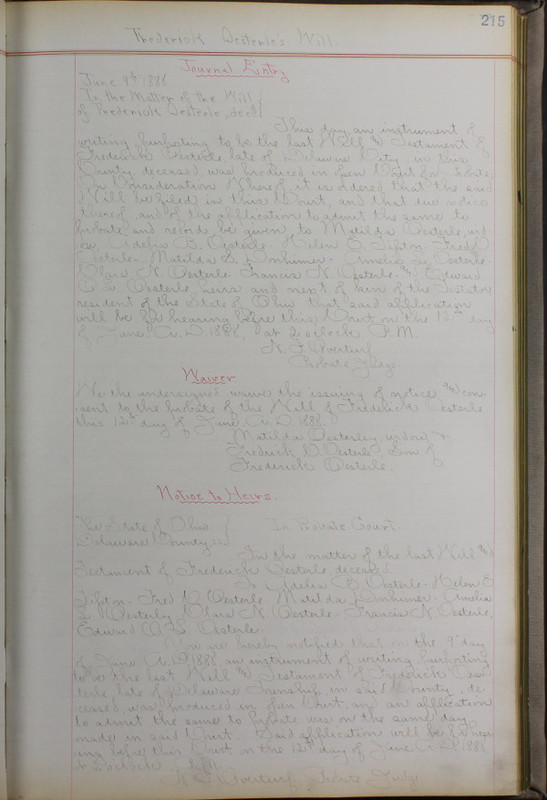 215
Frederick Oesterle's Will.
Journal Entry
June 9th 1888
In the Matter of the Will
of Frederick Oesterle, decd
This day an instrument of
writing purporting to be the last Will & Testament of
Frederick Oesterle late of Delaware City, in this
County, deceased, was produced in open Court for Probate,
In Consideration Whereof it is ordered that the said
Will be filed in this Court, and that due notice
thereof, and of the application to admit the same to
probate and record, be given, to Matilda Oesterle, wid
ow, Adelia B. Oesterle - Helen E. Tipton - Fred D
Oesterle - Matilda D. Dunhimer - Amelia L. Oesterle -
Clara N. Oesterle Francis N. Oesterle & Edward
Oesterle, heirs and next of kin of the Testator
resident of the State of Ohio that said application
will be for hearing before this Court on the 12th day
of June A. D. 1888, at 2 o'clock P.M.
Probate Judge
Waiver
We the undersigned waive the issuing of notice & con
sent to the probate of the Will of Frederick Oesterle
this 12th day of June A. D. 1888.
Matilda Oesterley, widow &
Fredrick D. Oesterle, Son of
Frederick Oesterle.
Notice to Heirs.
The State of Ohio
Delaware County ss
In Probate Court.
In the matter of the last Will &
Testament of Frederick Oesterle deceased
To Adelia B. Oesterle - Helen E
Tipton - Fred D Oesterle Matilda Dunhimer - Amelia
L Oesterley Clara N. Oesterle - Francis N. Oesterle,
Edward Oesterle.
You are hereby notified that on the 9th day
of June A. D. 1888 an instrument of writing purporting
to be the last Will & Testament of Frederick Oes
terle, late of Delaware Township, in said County, de
ceased was produced in open Court, and an application
to admit the same to probate was on the same day
made in said Court. Said application will be for hear
ing before this Court on the 12th day of June A. D. 1888
at 2 o'clock P.M.
Probate Judge